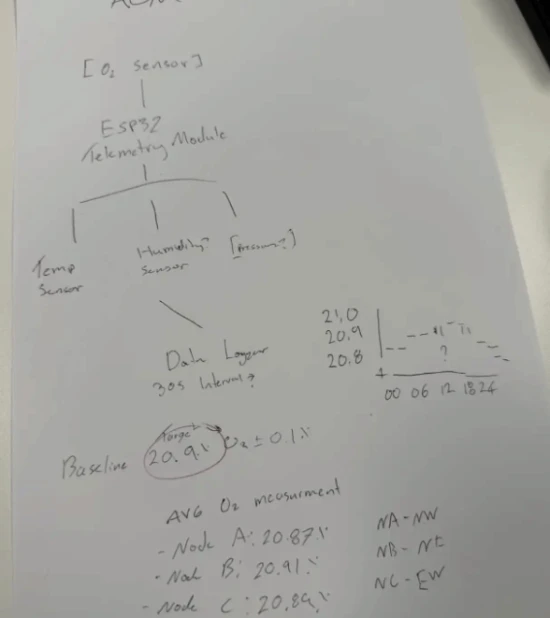 [O₂ sensor]
ESP32
Telemetry Module
Temp
Sensor
Humidity?
Sensor
[Pressure?]
Data Logger
30s Interval?
21.0
20.9
20.8
?
00 06 12 18 24
Target
Baseline 20.9% O₂ ± 0.1%
AVG O₂ measurment
- Node A: 20.87%
- Node B: 20.91%
- Node C: 20.89%
NA-NW
NB-NE
NC-EW